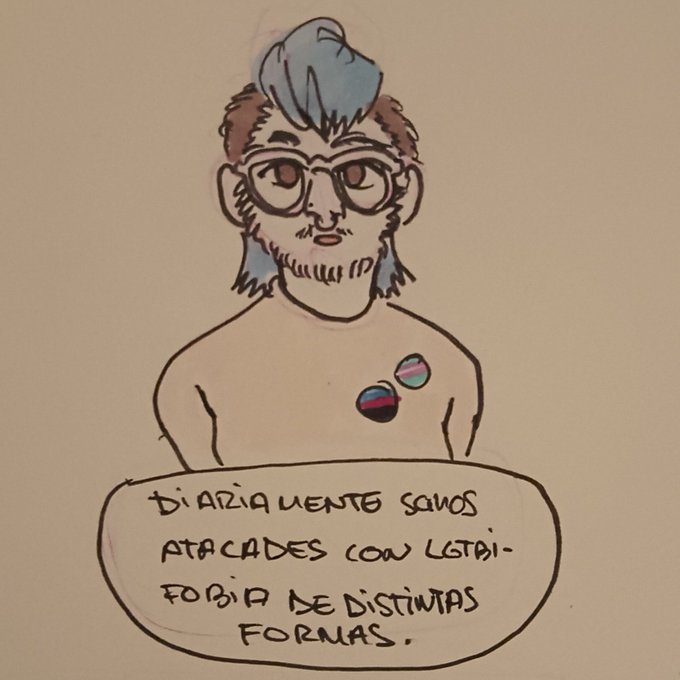 DIARIAMENTE SOMOS
ATACADES CON LGTBI-
FOBIA DE DISTINTAS
FORMAS.